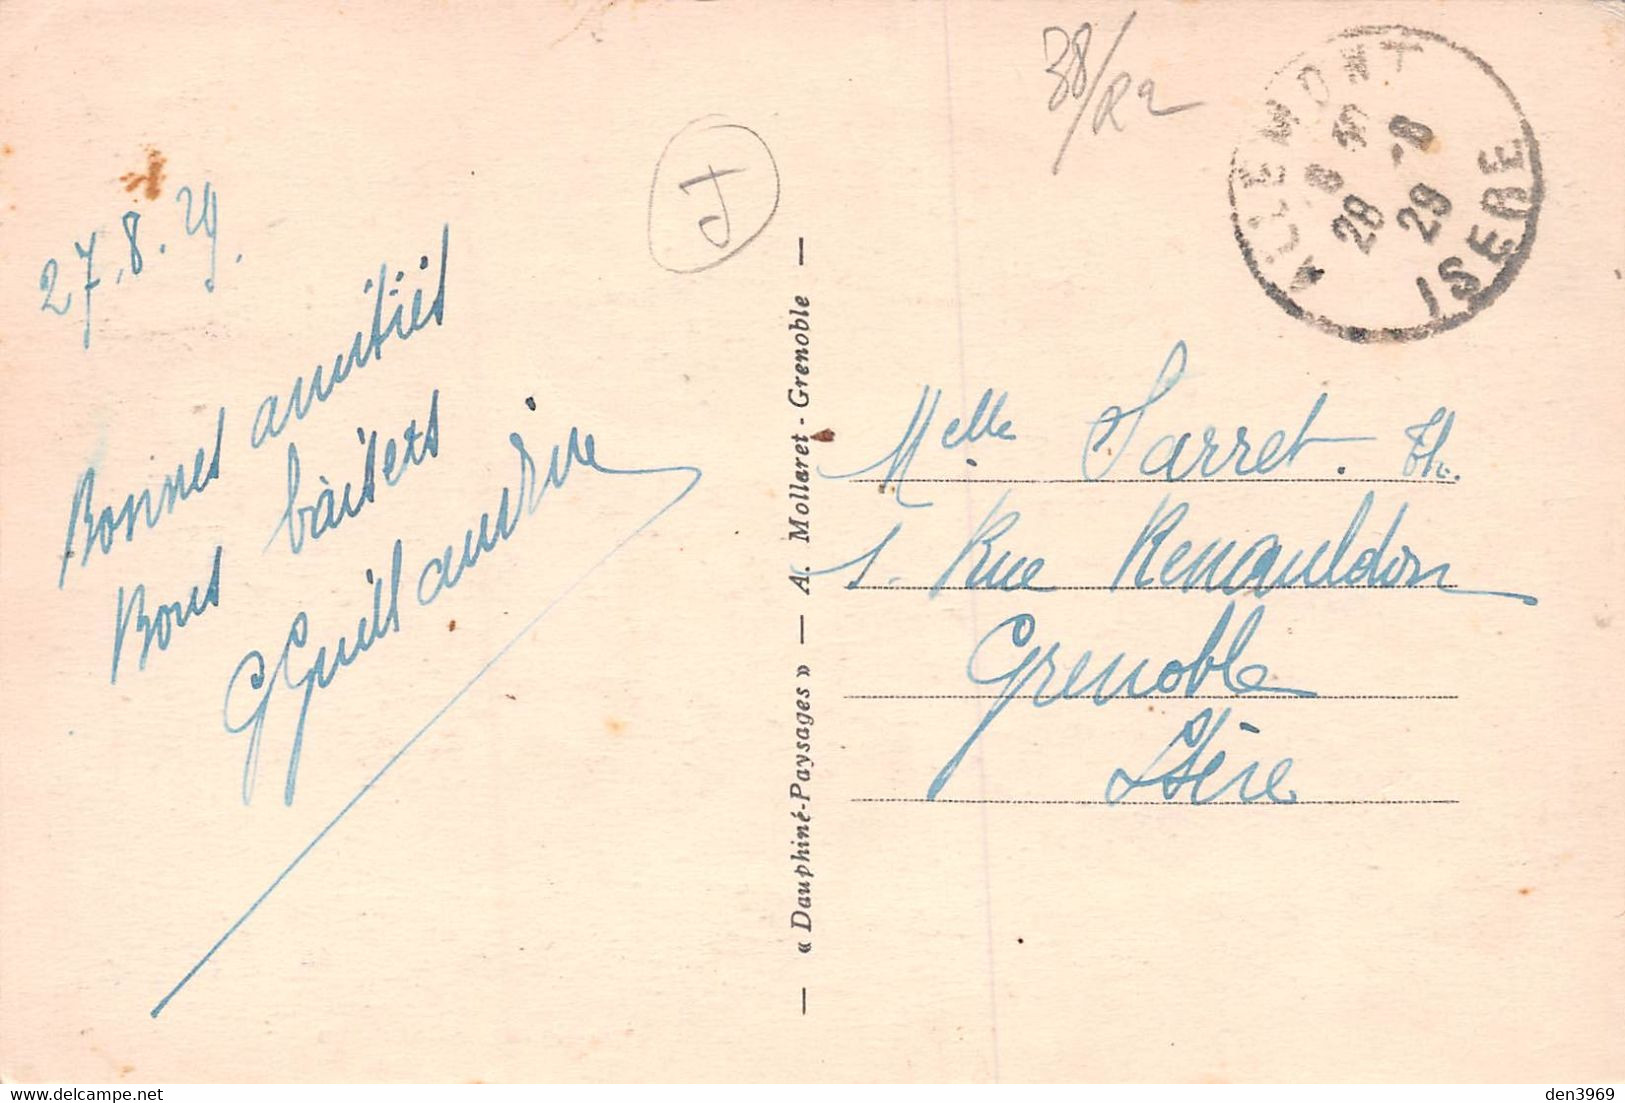 27.8.29.
Bonnes amitiés
Bons baisers
J
« Dauphiné-Paysages » — A. Mollaret - Grenoble —
38/R2
ALLEMONT
28 -8
29
ISERE
Melle Sarret. Th.
1. Rue Renauldon
Grenoble
Isère
www.delcampe.net
den3969